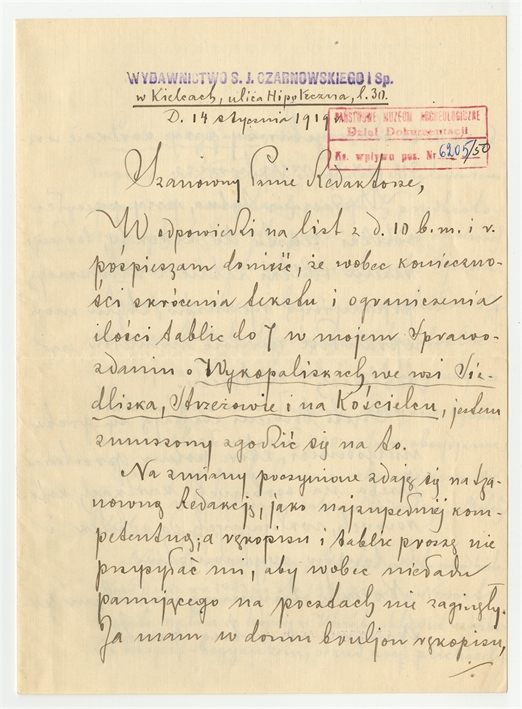 WYDAWNICTWO S. J. CZARNOWSKIEGO i Sp.
w Kielcach, ulica Hipoteczna, l. 30.
D. 14 stycznia 1919 r.
PAŃSTWOWE MUZEUM ARCHEOLOGICZNE
Dział Dokumentacji
Ks. wpływu poz. Nr 6205/50
Szanowny Panie Redaktorze,
W odpowiedzi na list z d. 10 b. m. i r.
pośpieszam donieść, że wobec konieczno-
ści skrócenia tekstu i ograniczenia
ilości tablic do 7 w mojem Sprawo-
zdaniu o Wykopaliskach we wsi Sie-
dliska, Strzeżowie i na Kościelcu, jestem
zmuszony zgodzić się na to.
Na zmiany poczynione zdaję się na Sza-
nowną Redakcję, jako najzupełniej kom-
petentną; a rękopisu i tablic proszę nie
przysyłać mi, aby wobec nieładu
panującego na pocztach nie zaginęły.
Ja mam w domu bruljon rękopisu,
./.